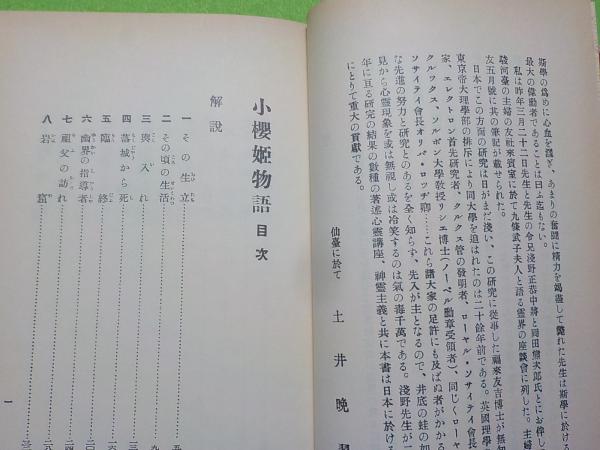 斯學の爲めに心血を濺ぎ、あまりの奮鬪に精力を竭盡して斃れた先生は斯學に於ける
最大の偉勳者であることは曰ふ迄もない。
私は昨年三月二十二日先生と先生の令兄淺野正恭中將と岡田熊次郎氏とにお伴し
駿河臺の主婦の友社來賓室に於て九條武子夫人と語る靈界の座談會に列した。主婦
友五月號に其の筆記が載せられた。
日本でこの方面の研究は日がまだ淺い、この研究に從事した福來友吉博士が無知
東京帝大理學部の排斥により同大學を追はれたのは二十餘年前である。英國理學
家、エレクトロン首先研究者、クルクス管の發明者、ローヤル・ソサイティ會長
クルツクス・ソルボン大學教授リシエ博士(ノーベル勳章受領者)、同じくローヤ
ソサイティ會長オリバ・ロツヂ卿……これら諸大家の足許にも及ばぬ者がかかる
な先進の努力と研究とのあるを全く知らず、先入が主となるので、井底の蛙の如
見から心靈現象を或は無視し或は冷笑するのは氣の毒千萬である。淺野先生が二
年に亘る研究の結果の數種の著述心靈講座、神靈主義と共に本書は日本に於ける
にとりて重大の貢獻である。
仙臺に於て
土井晩翠
小櫻姫物語 目次
解說
一 その生立
二 その頃の生活
三 輿入れ
四 落城から死
五 臨終
六 幽界の指導者
七 祖父の訪れ
八 岩窟
一